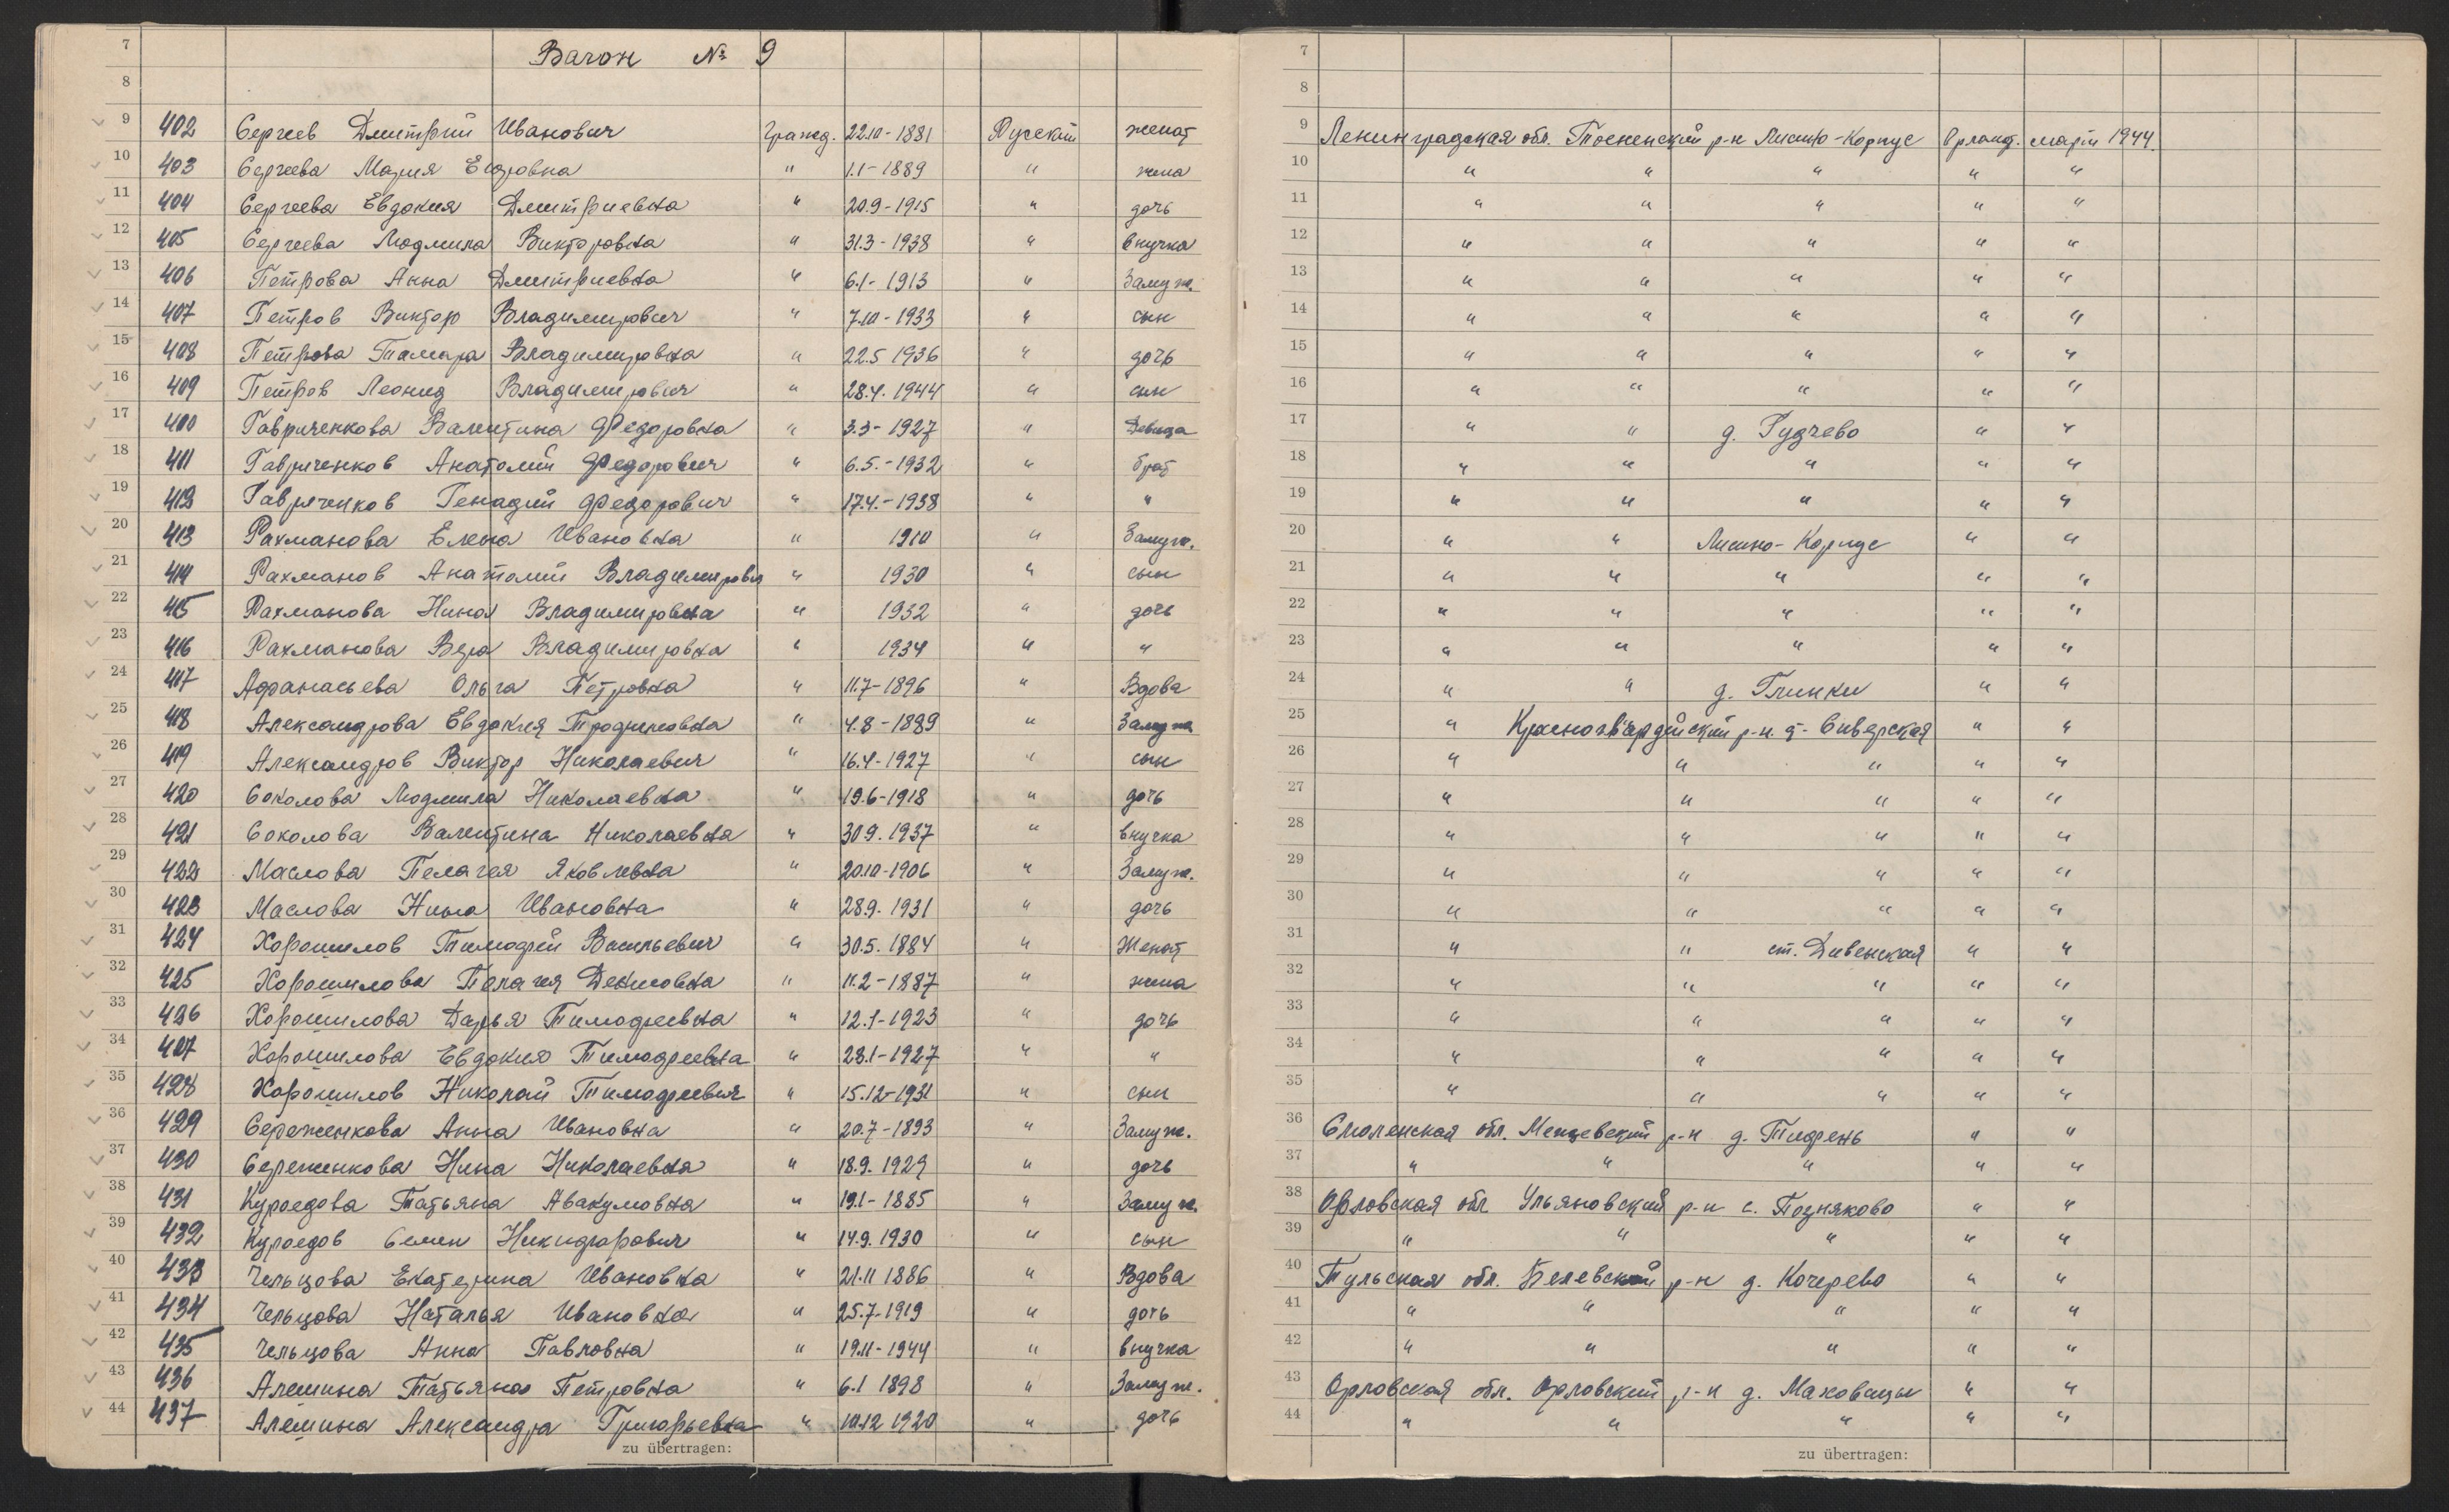 7 Вагон № 9 7
8 8
9 402 Сергеев Дмитрий Иванович Гражд. 22.10-1881 Русский женат 9 Ленинградская обл. Тосненский р-н Лисино-Корпус март 1944
10 403 Сергеева Мария Егоровна " 1.1-1889 " жена 10 " " " " "
11 404 Сергеева Евдокия Дмитриевна " 20.9-1915 " дочь 11 " " " " "
12 405 Сергеева Людмила Викторовна " 31.3-1938 " внучка 12 " " " " "
13 406 Петрова Анна Дмитриевна " 6.1-1913 " Замуж. 13 " " " " "
14 407 Петров Виктор Владимирович " 7.10-1933 " сын 14 " " " " "
15 408 Петрова Тамара Владимировна " 22.5 1936 " дочь 15 " " " " "
16 409 Петров Леонид Владимирович " 28.4.1944 " сын 16 " " " " "
17 410 Гавриченкова Валентина Федоровна " 3.3-1927 " Девица 17 " " д. Гудчево " "
18 411 Гавриченков Анатолий Федорович " 6.5.-1932 " брат 18 " " " " "
19 412 Гавриченков Генадий Федорович " 17.4.-1938 " " 19 " " " " "
20 413 Рахманова Елена Ивановна " 1910 " Замуж. 20 " " Лисино-Корпус " "
21 414 Рахманов Анатолий Владимирович " 1930 " сын 21 " " " " "
22 415 Рахманова Нина Владимировна " 1932 " дочь 22 " " " " "
23 416 Рахманова Вера Владимировна " 1934 " " 23 " " " " "
24 417 Афанасьева Ольга Петровна " 11.7-1896 " Вдова 24 " " д. Глинки " "
25 418 Александрова Евдокия Трофимовна " 4.8-1889 " Замуж 25 " Красногвардейский р-н. Сиверская " "
26 419 Александров Виктор Николаевич " 16.4-1927 " сын 26 " " " " "
27 420 Соколова Людмила Николаевна " 19.6-1918 " дочь 27 " " " " "
28 421 Соколова Валентина Николаевна " 30.9.1937 " внучка 28 " " " " "
29 422 Маслова Пелагея Яковлевна " 20.10-1906 " Замуж. 29 " " " " "
30 423 Маслова Нина Ивановна " 28.9.1931 " дочь 30 " " " " "
31 424 Хорошилов Тимофей Васильевич " 30.5.1884 " Женат 31 " " ст. Дивенская " "
32 425 Хорошилова Пелагея Денисовна " 11.2-1887 " жена 32 " " " " "
33 426 Хорошилова Дарья Тимофеевна " 12.1-1923 " дочь 33 " " " " "
34 427 Хорошилова Евдокия Тимофеевна " 28.1-1927 " " 34 " " " " "
35 428 Хорошилов Николай Тимофеевич " 15.12-1931 " сын 35 " " " " "
36 429 Сереженкова Анна Ивановна " 20.7-1893 " Замуж. 36 Смоленская обл. р-н д. " "
37 430 Сереженкова Нина Николаевна " 18.9.1929 " дочь 37 " " " " "
38 431 Куроедова Татьяна Авакумовна " 19.1-1885 " Замуж. 38 Орловская обл. Ульяновский р-н с. Поздняково " "
39 432 Куроедов Семен Никифорович " 14.9.1930 " сын 39 " " " " "
40 433 Чельцова Екатерина Ивановна " 21.11 1886 " Вдова 40 Тульская обл. Белевский р-н д. Кочерево " "
41 434 Чельцова Наталья Ивановна " 25.7-1919 " дочь 41 " " " " "
42 435 Чельцова Анна Павловна " 19.11-1944 " внучка 42 " " " " "
43 436 Алешина Татьяна Петровна " 6.1 1898 " Замуж. 43 Орловская обл. Орловский р-н д. Маховицы " "
44 437 Алешина Александра Григорьевна " 10.12 1920 " дочь 44 " " " " "
zu übertragen: zu übertragen: